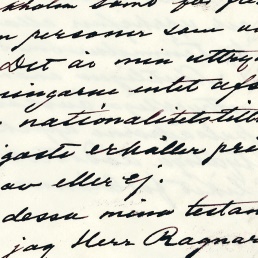 kholm samt för fle
n personer som un
Det är min uttry
ningarne intet afs
nationalitetstill
igaste erhåller pri
av eller ej.
dessa mina testam
jag Herr Ragnar